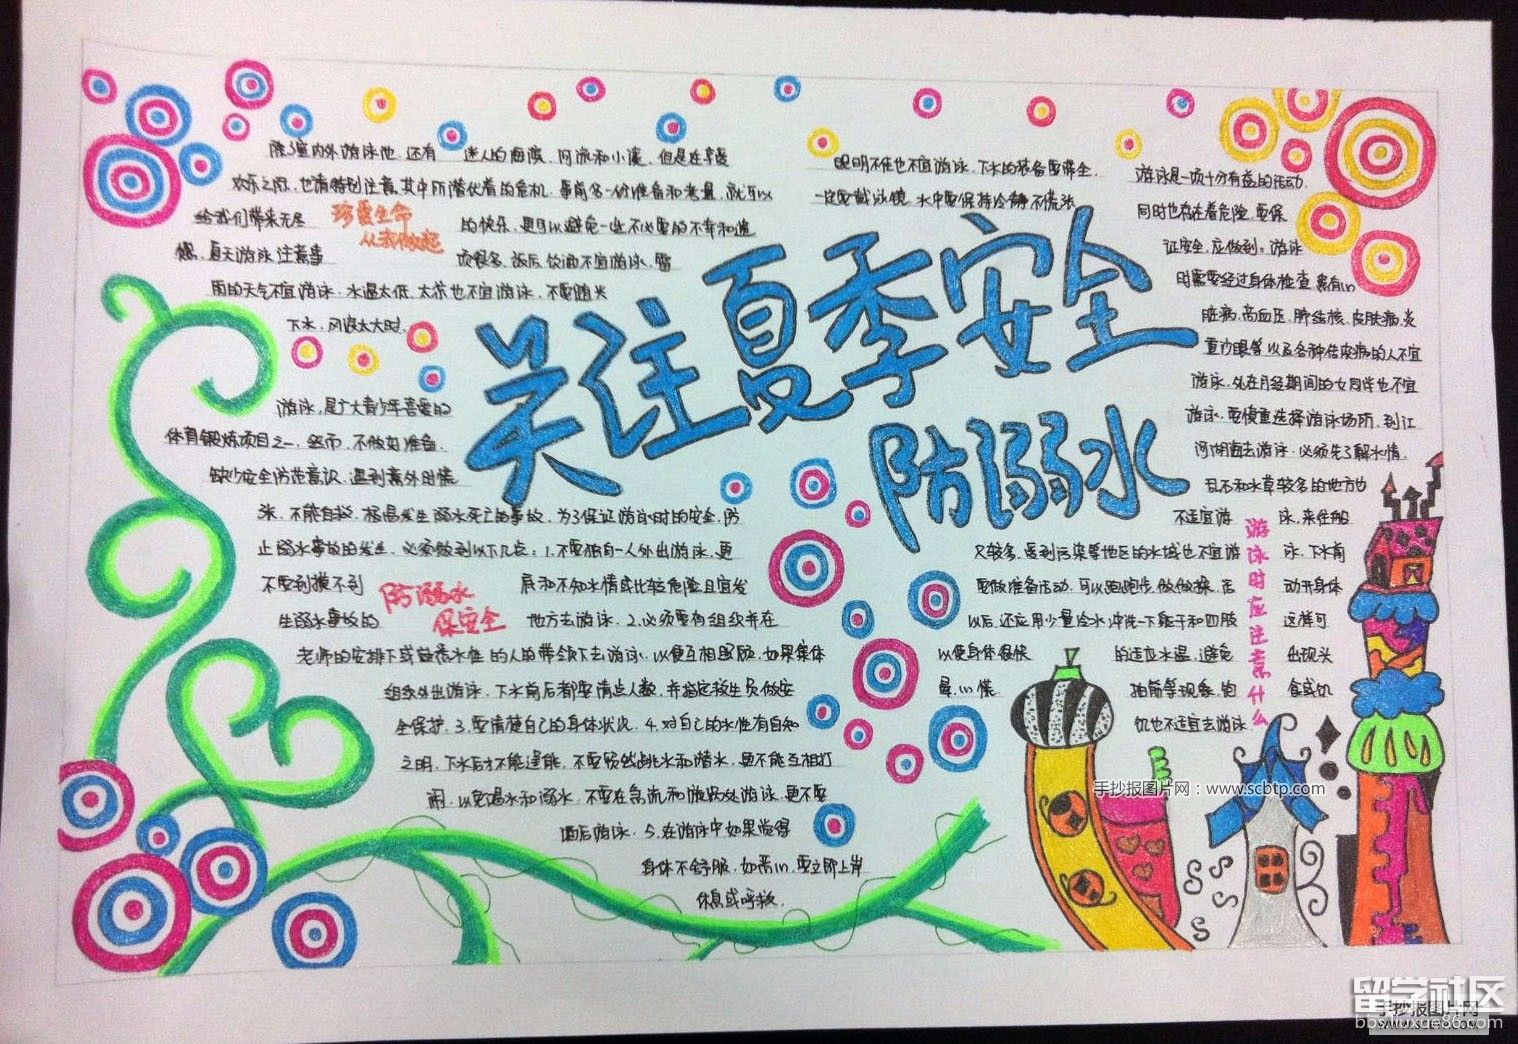 关注夏季安全
防溺水
除了室内外游泳池，还有迷人的海滨、河流和小溪，但是在享受
欢乐之际，也请特别注意其中所潜伏着的危机，事前多一份准备和考量，就可以
给我们带来无尽的快乐，更可以避免一些不必要的不幸和遗
憾，夏天游泳注意事项很多，饭后、饮酒不宜游泳，雷
雨的天气不宜游泳，水温太低、太凉也不宜游泳，不要随兴
下水，风浪太大时，
珍爱生命
从我做起
眼明不佳也不宜游泳，下水的装备要带全，
一定要戴泳镜，水中要保持冷静不慌张
游泳，是广大青少年喜爱的
体育锻炼项目之一，然而，不做好准备、
缺少安全防范意识，遇到意外时慌
张、不能自救，极易发生溺水死亡的事故，为了保证游泳时的安全，防
止溺水事故的发生，必须做到以下几点：1.不要独自一人外出游泳，更
不要到摸不到底和不知水情或比较危险且宜发
生溺水事故的地方去游泳，2.必须要有组织并在
防溺水
保安全
老师的安排下或熟悉水性的人的带领下去游泳，以便互相照顾，如果集体
组织外出游泳，下水前后都要清点人数，并指定救生员做安
全保护，3.要清楚自己的身体状况，4.对自己的水性有自知
之明，下水后才不能逞能，不要贸然跳水和潜水，更不能互相打
闹，以免喝水和溺水，不要在急流和漩涡处游泳，更不要
酒后游泳，5.在游泳中如果觉得
身体不舒服，如恶心，要立即上岸
休息或呼救，
游泳是一项十分有益的活动，
同时也存在着危险，要保
证安全，应做到：游泳
时需要经过身体检查，患有心
脏病、高血压、肺结核、皮肤病、炎
重沙眼等以及各种传染病的人不宜
游泳，处在月经期间的女同伴也不宜
游泳，要慎重选择游泳场所，到江
河湖海去游泳，必须先了解水情，
乱石和水草较多的地方也
不适宜游泳，来往船
只较多，受到污染等地区的水域也不宜游泳，下水前
要做准备活动，可以跑跑步、做做操，活动开身体
以后，还应用少量冷水冲洗一下躯干和四肢，这样可
以使身体很快的适应水温，避免出现头
晕、心慌、抽筋等现象，饱食或饥
饥也不适宜去游泳，
游泳时应注意什么
手抄报图片网：www.scbtp.com
留学社区
手抄报图片网
bbs.liuxue86.com